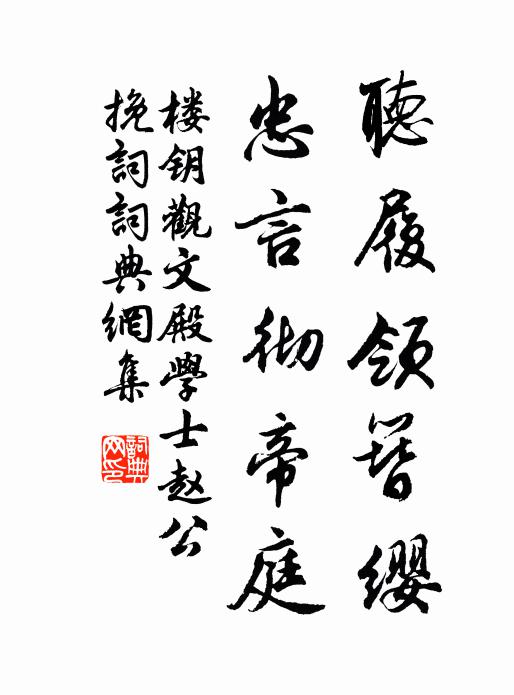 聽履領簪纓
忠言彻帝庭
楼钥觀文殿學士赵公
挽詞詞典網集
詞典网印